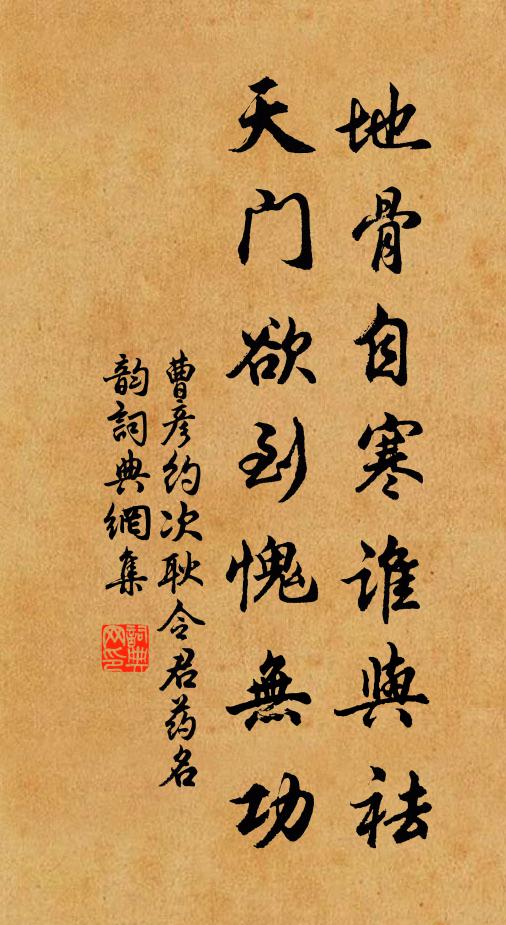 地骨自寒谁與祛
天门欲到愧無功
曹彦约次耿令君药名
韵詞典網集
詞典
网印